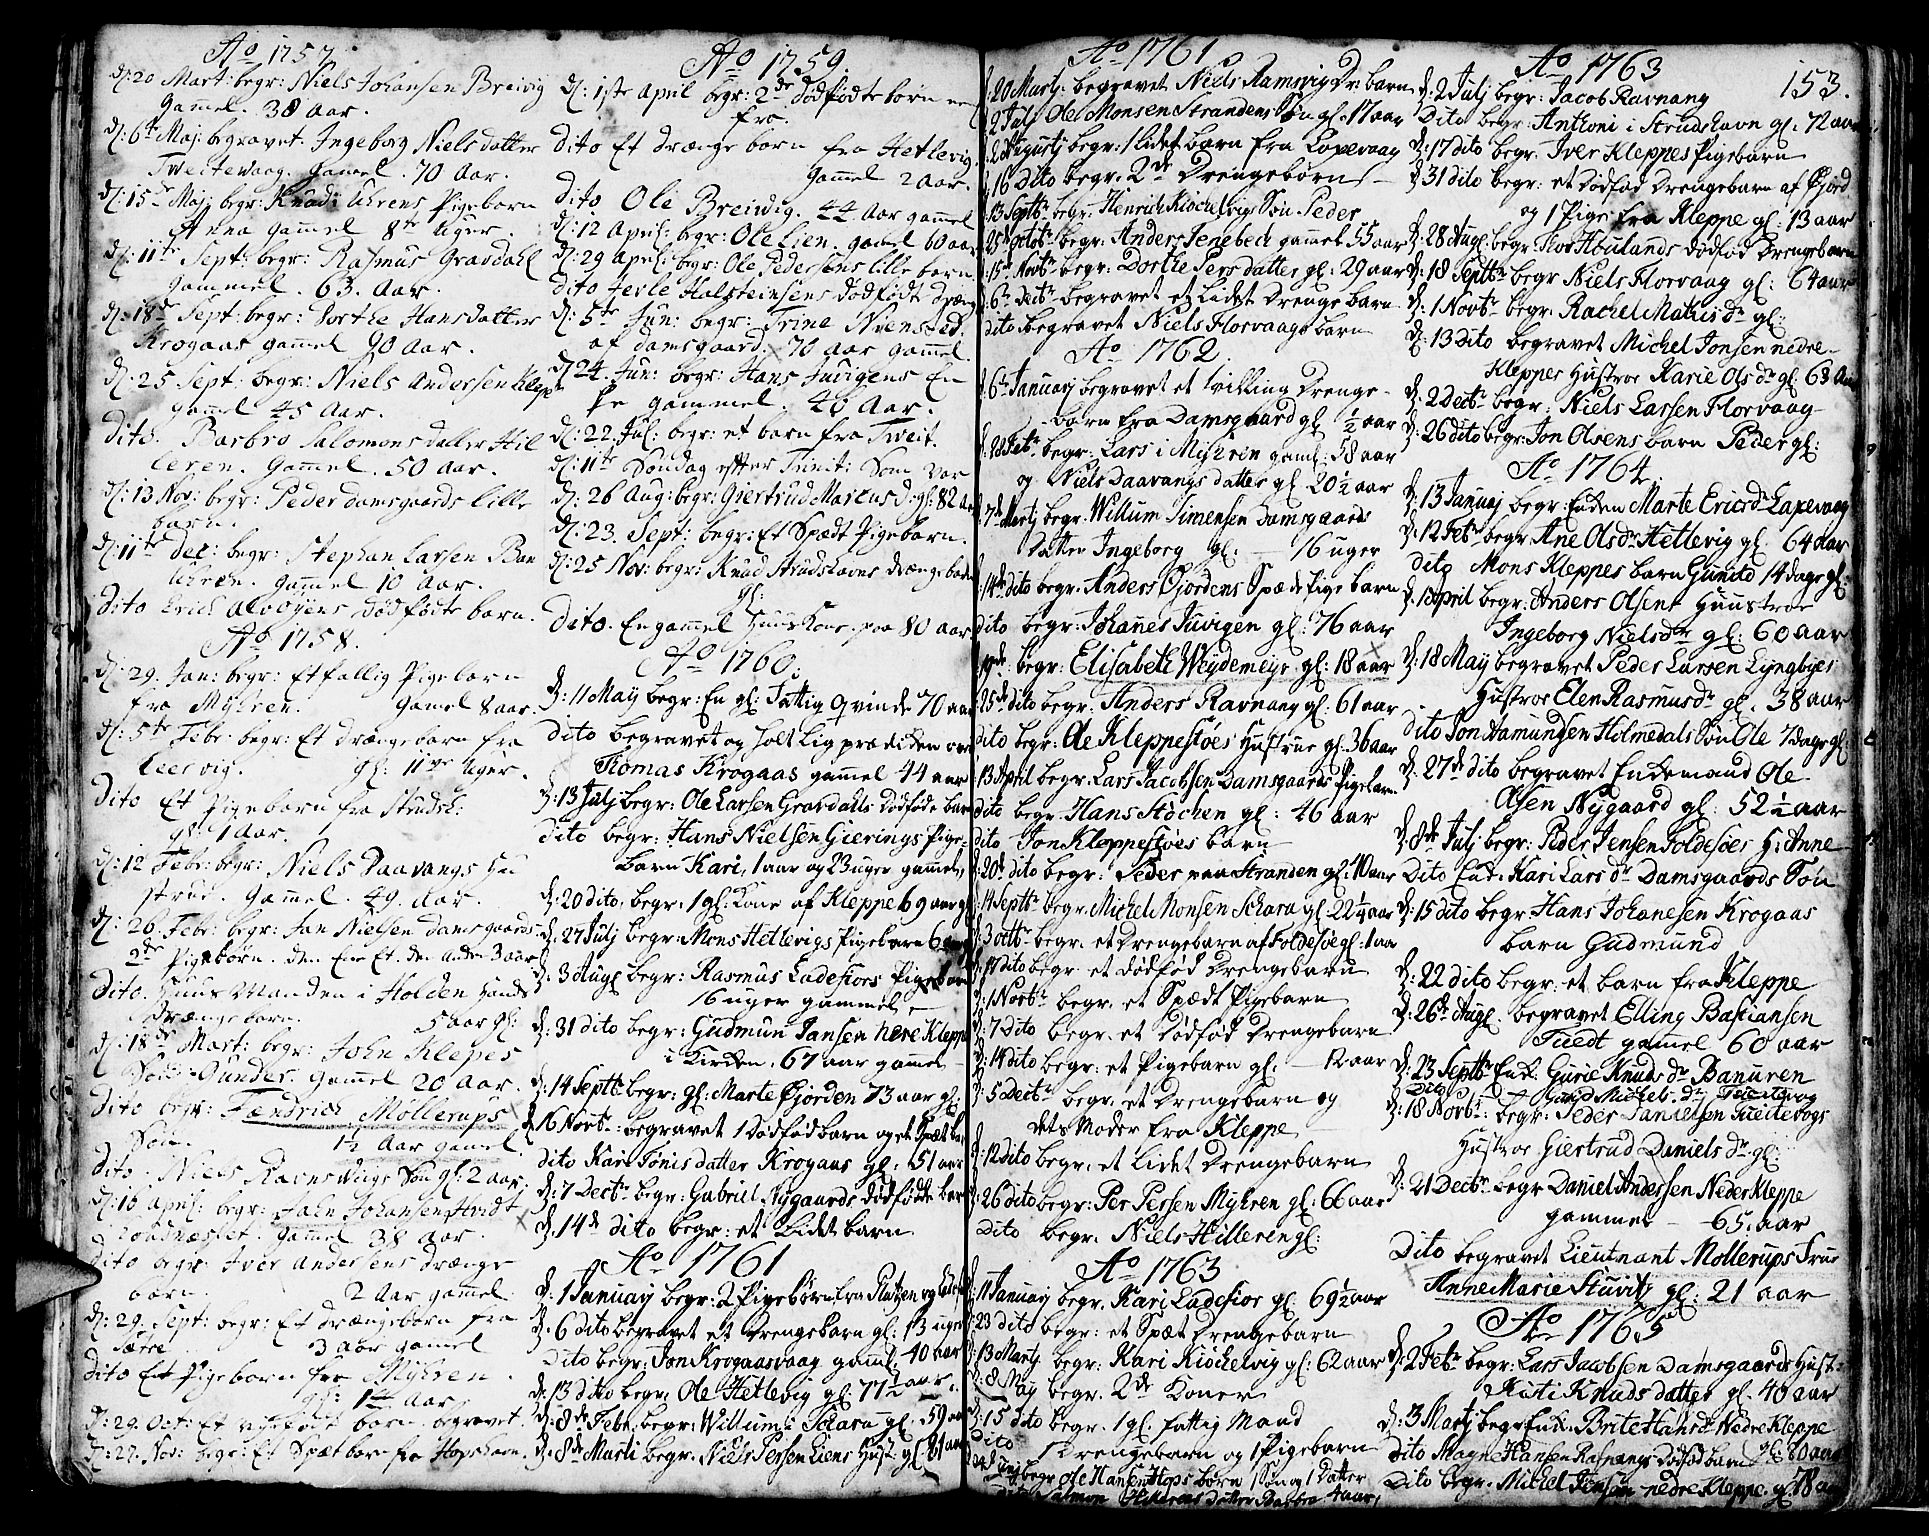 Ao 1757.
d: 20 Mart: begr: Niels Johansen Breivig
Gammel. 38 Aar.
d: 6te Maj: begravet. Ingeborg Niels datter
Tweitevaag. Gamel. 70 Aar.
d: 15de Maj: begr: Knud: Uhrens Pigebarn
Anna Gammel 8te Uger.
d: 11te Sept: begr: Rasmus Gravdahl
Gammel. 63. Aar.
d: 18de Sept: begr: Dorthe Hansdatter
Krogaas gammel 90 Aar.
d: 25 Sept: begr: Niels Andersen Klepp
gamel 45 Aar.
Dito. Barbro Salomons datter Hil
leren. Gamel. 50 Aar.
d: 13 Nov: begr: Peder damsgaards lille
barn.
d: 11te Dec: begr: Stephan Larsen Ban
Uhren. Gamel 10 Aar.
Dito Erich Alvøyens dødfødte barn.
Ao 1758.
d: 29. Jan: begr: Et fattig Pigebarn
fra Myhren. Gamel 8 aar.
d: 5te Febr: begr: Et drængebarn fra
Leervig. gl: 11 Uger.
Dito Et Pigebarn fra Strudsh:
gl: 1 Aar.
d: 12 Febr: begr: Niels Daavangs Hu
strue. Gammel. 49. Aar.
d: 26. Febr: begr: Jan Nielsen Damsgaards
2de Pigebørn. den Ene Et. den Anden 3 aar
Dito. Huusmanden i Holden Hans
drængebarn. 5 aar gl:
d: 18de Mart: begr: John Klepes
Søn Gunder. Gammel 20 Aar.
Dito begr: Fendrich Møllerups
Søn. 1½ Aar gamel.
Dito. Niels Ravnswigs Søn gl: 2 aar.
d: 16 april: begr: Jahn Johansen Hvidt
Gammel 38 Aar.
Dito begr: Iver Andersens drænge
barn. 2 Aar gamel.
d: 29. Sept: begr: Et drængebarn fra
Sætre 3 Aar gamel
Dito Et Pigebarn fra Myhren.
gl: 1 Aar.
d: 29. Oct: Et barn begravet
d: 27. Nov: begr: Et Spæt barn fra Hopshavn.
Ao 1759.
d: 1ste April begr: 2de dødfødte børn
fra.
Dito Et drænge barn fra Hetlevig
gamel 2 Aar.
Dito Ole Breivig. 44 Aar gamel
d: 12 April: begr: Ole Lien. gamel 60 aar
d: 29 April: begr: Ole Pedersens lille barn
Dito Jerle Halsteinsens dødfødte dræng
d: 5te Jun: begr: Trine Nvensted.
af damsgaard. 70 Aar gamel.
d 24 Jun: begr: Hans Juvigens En
ke gammel. 46 Aar.
d: 22. Jul: begr: et barn fra Tweit.
d: 11te Søndag efter Trinit: Som var
d: 26 Aug: begr: Giertrud Marcus d: gl: 82 Aar
d: 23. Sept: begr: Et Spædt Pigebarn.
d: 25 Nov: begr: Knud Strudshavns drængebarn
gl:
Dito. En gamel Huus Kone paa 80 aar
Ao 1760.
d: 11 May begr: En gl: Fattig Qvinde 70 aar
Dito begravet og holt Lig prædiken over
Tomas Krogaas gammel 44 aar
d: 13 Julj begr: Ole Larsen Gravdahls dødføde barn
dito begr: Hans Nielsen Gierings Pige-
barn Kari, 1 aar og 23 uger gammel,
d: 20 dito, begr: 1 gl: Kone af Kleppe 69 aar gl
d: 27 Julj begr: Mons Hetlevigs Pigebarn 6
d: 3 Augs begr: Rasmus Ladesiors Pigebarn
16 uger gammel
d: 31 dito begr: Gudmun Jansen nere Kleppe
i Kirken. 67 aar gamel
d: 14 Septbr begr: gl: Marte Fjorden 73 aar gl:
d 16 Novbr: begravet 1 Dødfød barn og et Spæt bar
dito Kari Tønis datter Krogaas gl: 51 aar
d: 7 Decbr begr: Gabriel Nygaards dødfødde bar
d. 14de dito begr: et Lidet barn
Ao 1761
d. 1 Januarj begr: 2 Pigebørn fra
d. 6 dito begravet et drengebarn gl: 13 uger
dito begr: Jon Krogaasvaag gamel: 40 aar
d: 13 dito begr: Ole Hetlevig gl: 77½ aar.
d: 8de Febr. begr: Willum i Schara gl. 59 aar
d. 8de Marti begr. Niels Persen Liens Hust. gl 81 aar
Ao 1761
d: 20 Martj. begravet Niels Ramsvig Dr barn
2 Julj Ole Monsen Strandens Søn gl. 17 aar
2 Augustj begr: 1 lidet barn fra Loxevaag
16 Dito begr. 2de Drengebørn
13 Septbr begr: Henrich Kiøchelvigs Søn Peder
25de octobr begr: Anders Jenebech gammel 55 aar
15de Novbr begr: Dorthe Pers datter gl: 29 aar
6te Decbr begravet et Lidet Drenge barn
dito begravet Niels Florvaags barn
Ao 1762
6te Januarj begravet et Tvilling Drenge-
barn fra Damsgaard gl ½ aar
28 Febr. begr: Lars i Myhren gamel: 58 aar
og Niels Daavangs datter gl 20½ aar
7de Martj begr. Willum Simensen Damsgaards
Datter Ingeborg gl: — 16 uger
14de dito begr: Anders Fjordens Spæde Pige barn
dito begr: Johanes Juvigen gl: 76 aar
begr: Elisabeth Weydemeyr gl: 18 aar
25de dito begr: Anders Ravnang gl: 61 aar
dito begr: Ole Kleppesløes Hustrue gl: 36 aar
13 April begr: Lars Jacobsen Damsgaards Pigebarn
dito begr. Hans Støchen gl: 46 aar
dito Jon Kleppesløes barn
20de dito begr: Peder paa Stranden gl: 70 aar
14 Septbr begr. Michel Monsen Schara gl 22½ aar
3 octbr begr. et Drengebarn af Foldesøe gl: 1 aar
14 dito begr. et dødfød Drengebarn
d: 1 Novbr begr. et Spædt Pigebarn
7 Dito begr. et Dødfød Drengebarn
d: 14 dito begr: et Pigebarn gl. — 12 aar
d: 5 Decbr begr. et Drengebarn og
dets Moder fra Kleppe
d: 12 dito begr: et lidet Drengebarn
d: 26 dito begr: Per Persen Myhren gl: 66 aar
Dito begr. Niels Hilleren gl:
Ao 1763
d: 11 Januarj begr. Kari Ladesior gl 69½ aar
23 dito begr: et Spæt Drengebarn
13 Martj begr: Kari Kiøchelvig gl: 62 aar
d: 8 May begr. 2de Koner
d: 15 dito begr. 1 gl. fattig Mand
Dito 1 Drengebarn og 1 Pigebarn
begr Ole Hansen Hops børn 1 Søn og 1 Datter
Salmon Hillerens datter Barbra 4 aar,
Ao 1763
153.
d: 2 Julj begr: Jacob Ravnang
Dito begr: Anthoni i Strudshavn gl. 72 aar
d: 17 dito begr: Iver Kleppes Pigebarn
d: 31 dito begr: et Dødfød Drengebarn af Fjord
og 1 Pige fra Kleppe gl: 13 aar
d: 28 Augl: begr Iver Houlands dødfød Drengebarn
d: 18 Septbr begr Niels Florvaag gl: 64 aar
d: 1 Novbr begr: Rachel Matis dr gl:
d: 13 dito begravet Michel Jonsen nedre-
Kleppes Hustroe Karie Ols dr gl: 63 Aar
d: 2 Decbr begr: Niels Larsen Florvaag
d: 26 dito begr: Jon Olsens barn Peder gl:
Ao 1764
d: 13 Januarj begr. Enken Marte Erics dr Laxevaag
d: 12 Febr begr Ane Ols dr Hetlevig gl. 64 aar
dito Mons Kleppes barn Gunild 14 dage gl:
d: 1 April begr: Anders Olsens Huustroe
Ingeborg Niels dr gl: 60 aar
d: 18 May begravet Peder Larsen Lyngbyes
Hustroe Elen Rasmus dr gl. 38 aar
dito Jon Aamundsen Holmedals Søn Ole 7 dage gl:
d: 27de dito begravet Enkemand Ole
Olsen Nygaard gl: 52½ aar
d: 8de Julj begr: Peder Jensen Foldesøes H: Anne
Dito Enk: Kari Lars dr Damsgaards Søn
d: 15 dito begr: Hans Johanesen Krogaas
barn Gudmund
d: 22 dito begr: et barn fra Kleppe
d: 26de Augl begravet Elling Bastiansen
Tuedt gamel 60 aar
d: 23 Septbr Enk: Gurie Knuds dr Banuren
Dito Gurid Michels dr Tuedtevog
d: 18 Novbr: begr: Peder Danielsen Tuedtevogs
Hustroe Giertrud Daniels dr gl:
d: 21 Decbr begr Daniel Andersen Neder Kleppe
gammel — 65. aar
Dito begravet Lieutnant Møllerups Frue
Anne Marie Stuvitz gl: 21 aar
Ao 1765
d: 2 Febr begr: Lars Jacobsen Damsgaards Hust:
Kirsti Knuds datter gl. 40 aar
d: 3 Martj begr Enk: Brite Hans dr Nedre Kleppe
dito Magne Hansen Ravnangs Dødfød barn gl: 80 aar
Dito begr. Michel Jensen nedre Kleppe. gl 78 aar